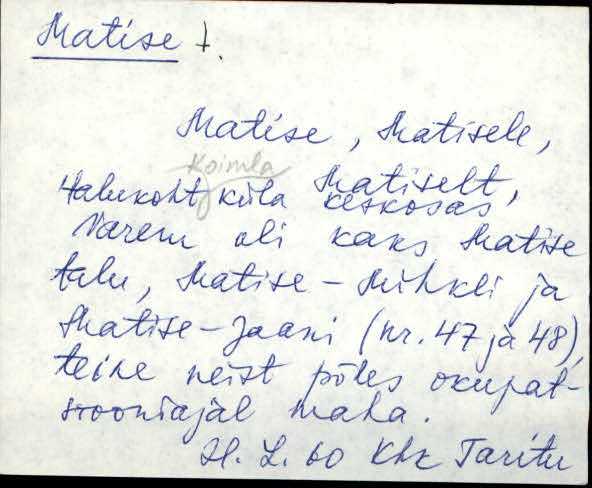 Matise t.
Matise, Matisele,
Koimla
Matiselt,
talukoht küla keskosas
Varem oli kaks Matise
talu, Matise-Mihkli ja
Matise-Jaani (nr. 47 ja 48),
teine neist põles okupat-
siooniajal maha.
H. L. 60 Khk Taritu